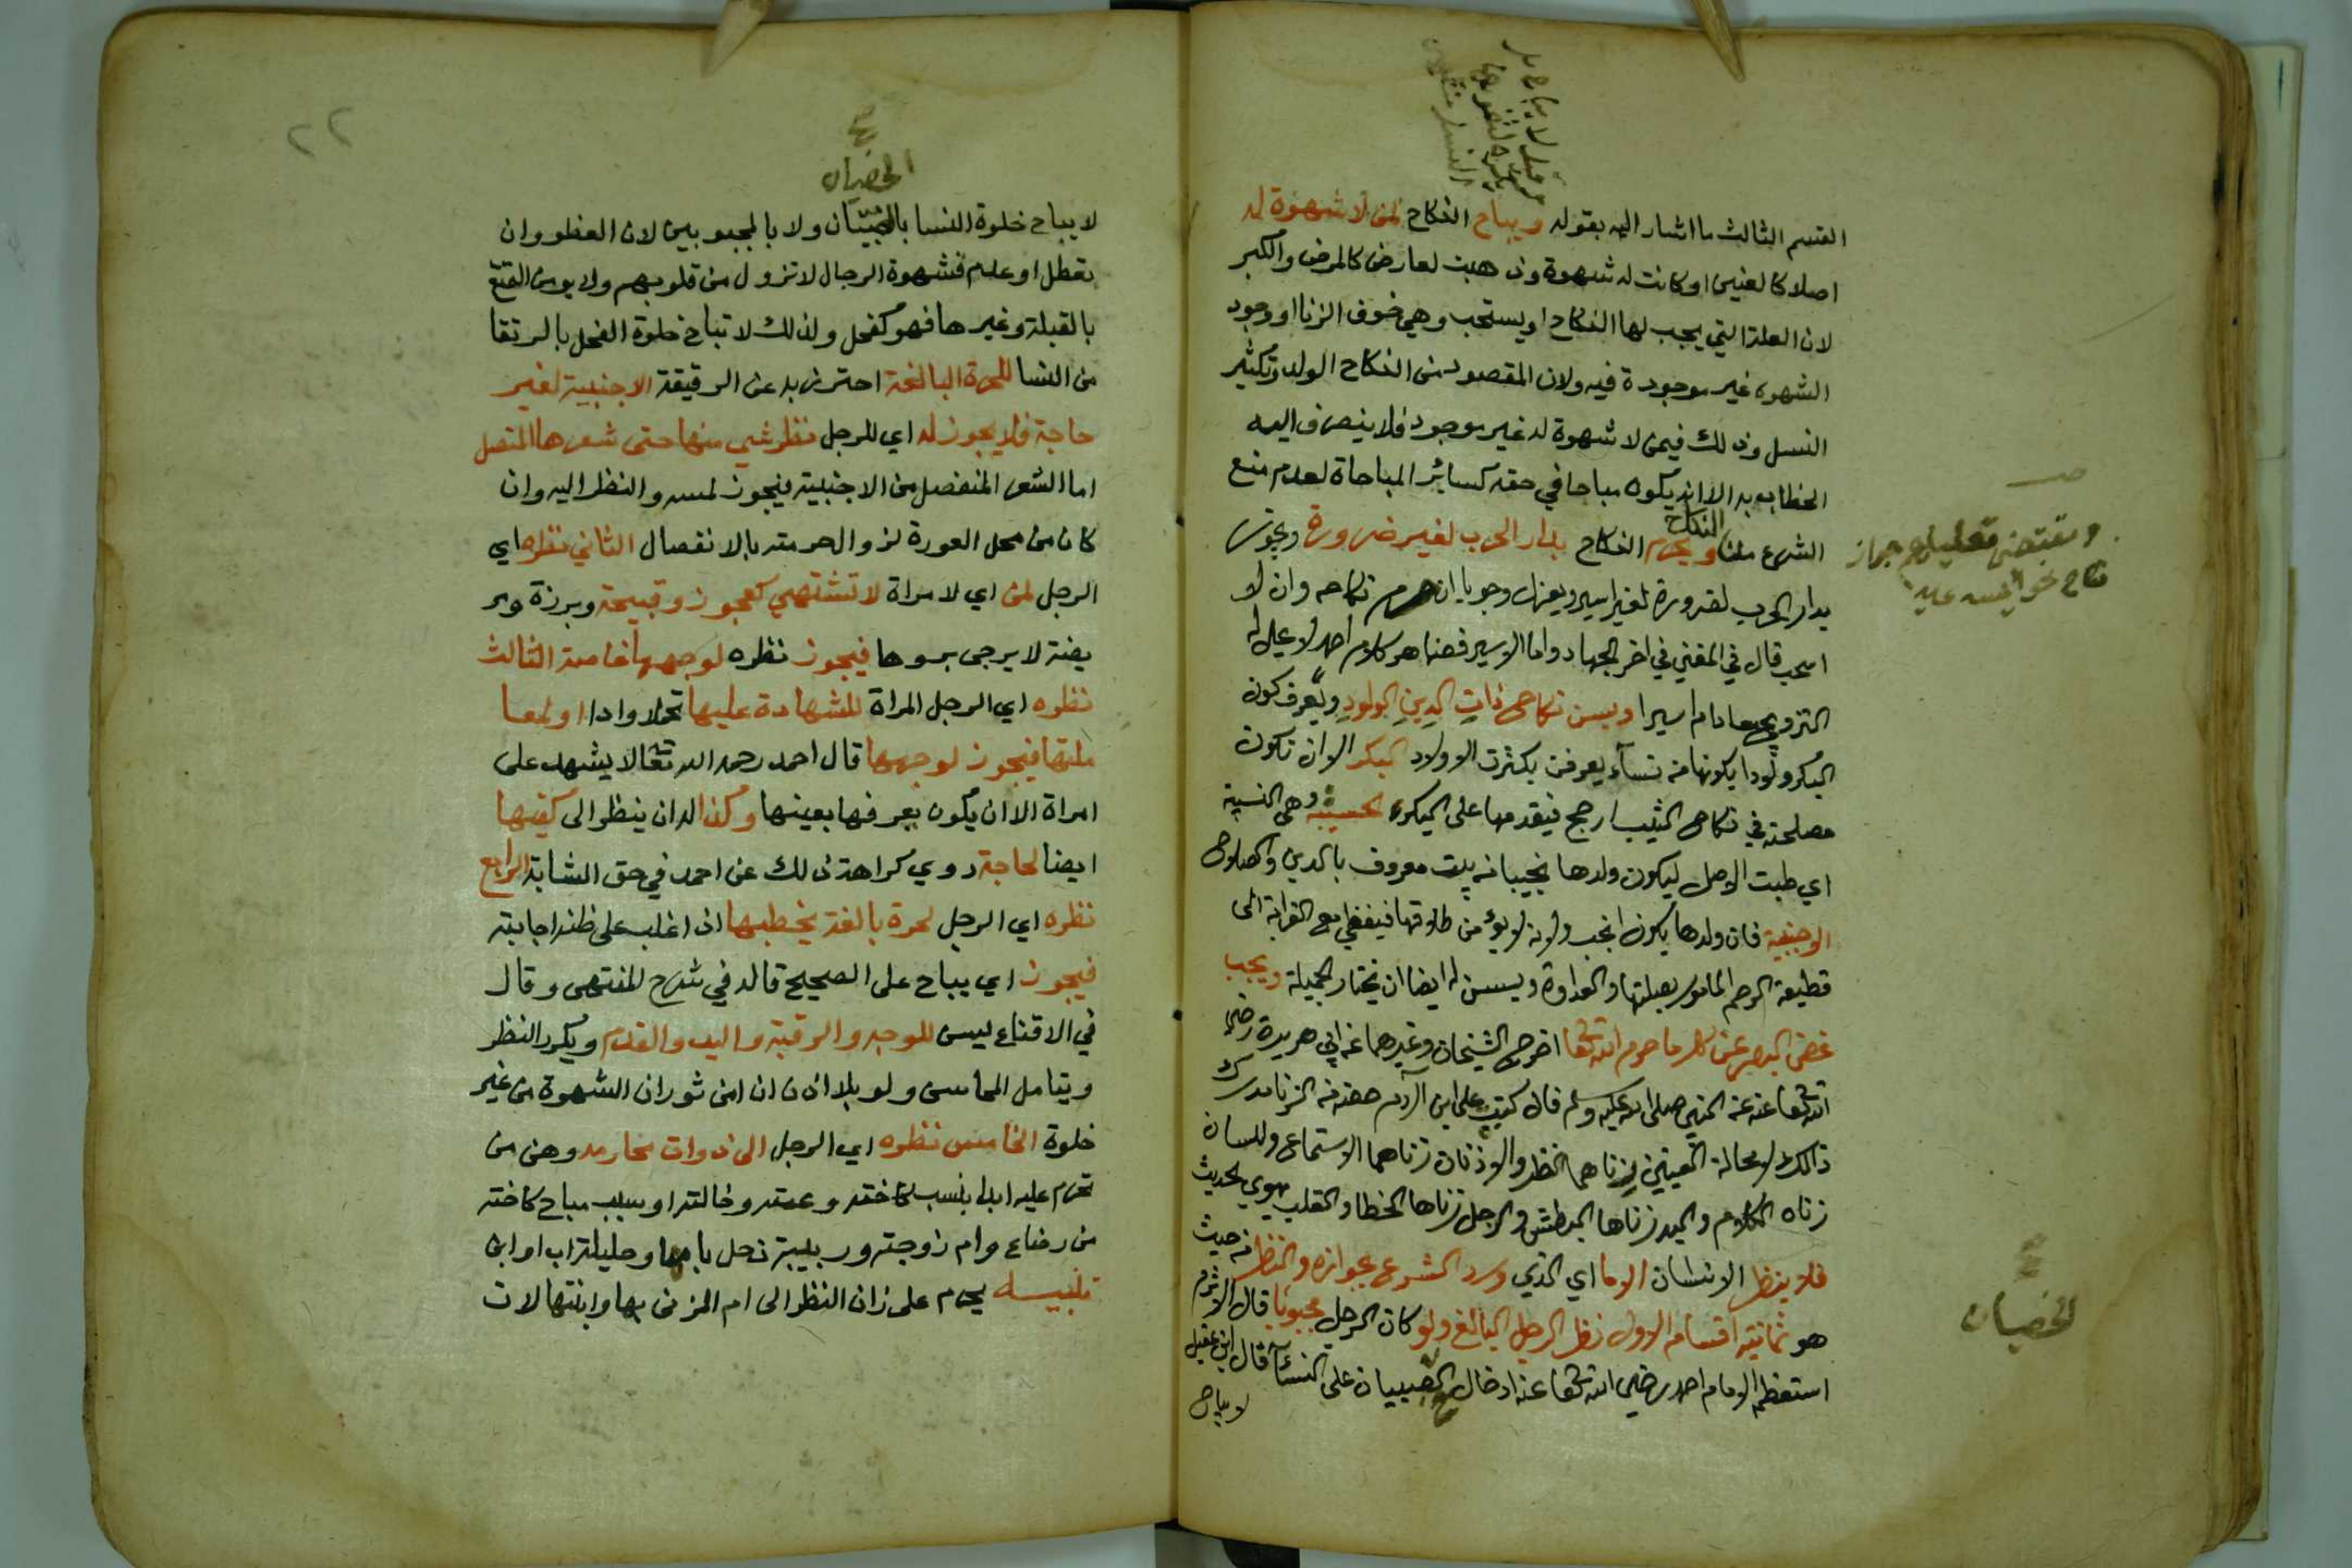 القسم الثالث ما اشار اليه بقوله ويباح النكاح لمن لا شهوة له
اصلا كالعنين او كانت له شهوة وذهبت لعارض كالمرض والكبر
لان العلة التي يجب لها النكاح او يستحب وهي خوف الزنا او وجود
الشهوه غير موجودة فيه ولان المقصود من النكاح الولد وتكثير
النسل وذلك فيمن لا شهوة له غير موجود فلا ينصرف اليه
الخطاب به الا انه يكون مباحا في حقه كسائر المباحاة لعدم منع
النكاح
الشرع منه ويحرم النكاح بدار الحرب لغير ضرورة ويجوز
بدار الحرب لضرورة لغير اسير ويعزل وجوبا ان حرم نكاحه وان لا
استحب قال في المغني في اخر الجهاد واما الاسير فظاهر كلام احمد لا يحل له
التزويج ما دام اسيرا ويسن نكاح ذات الدين الولود ويعرف كون
البكر ولودا بكونها من نساء يعرفن بكثرت الاولاد البكر الا ان تكون
مصلحته في نكاح الثيب ارجح فيقدمها على البكر الحسيبة وهي النسيبة
اي طيبت الاصل ليكون ولدها نجيبا من بيت معروف بالدين والصلاح
الاجنبية فان ولدها يكون انجب ولانه لا يؤمن طلاقها فيفضي مع القرابة الى
قطيعة الرحم المامور بصلتها والعداوة ويسن له ايضا ان يختار الجميلة ويجب
غض البصر عن كل ما حرم الله تعا اخرج الشيخان وغيرهما عن ابي هريرة رضي
الله تعا عنه عن النبي صلى الله عليه وسلم قال كتب على ابن آدم حظه من الزنا مدرك
ذالك لا محالة العينين زناهما النظر والاذنان زناهما الاستماع واللسان
زناه الكلام واليد زناها البطش والرجل زناها الخطا والقلب يهوي الحديث
فلا ينظر الانسان الا ما اي الذي ورد الشرع بجوازه والنظر من حيث
هو ثمانية اقسام الاول نظر الرجل البالغ ولو كان الرجل مجبوبا قال الاثرم
استعظم الامام احمد رضي الله تعا عنه ادخال الخصيان على النسآء قال ابن عقيل
لا يباح
ومقتضى تعليلهم جواز
نكاح نحو آيسة
الخصيان
٢٢
الخصيان
لا يباح خلوة النسا بالخصيان ولا بالمجبوبين لان العظو وان
تعطل او عدم فشهوة الرجال لا تزول من قلوبهم ولا يومن التمتع
بالقبلة وغيرها فهو كفحل ولذلك لا تباح خلوة الفحل بالرتقا
من النسا للحرة البالغة احترز به عن الرقيقة الاجنبية لغير
حاجة فلا يجوز له اي للرجل نظر شي منها حتى شعرها المتصل
اما الشعر المنفصل من الاجنبية فيجوز لمسه والنظر اليه وان
كان من محل العورة لزوال حرمته بالانفصال الثاني نظره اي
الرجل لمن اي لامراة لا تشتهي كعجوز وقبيحة وبرزة ومر
يضة لا يرجى بروها فيجوز نظره لوجهها خاصة الثالث
نظره اي الرجل المراة للشهادة عليها تحملا وادا او لمعا
ملتها فيجوز لوجهها قال احمد رحمه الله تعا لا يشهد على
امراة الا ان يكون يعرفها بعينها وكذا له ان ينظر الى كفيها
ايضا لحاجة روي كراهة ذلك عن احمد في حق الشابة الرابع
نظره اي الرجل لحرة بالغة يخطبها اذا غلب على ظنه اجابته
فيجوز اي يباح على الصحيح قاله في شرح المنتهى وقال
في الاقناع ليسن للوجه والرقبة واليد والقدم ويكرر النظر
ويتامل المحاسن ولو بلا اذن ان امن ثوران الشهوة من غير
خلوة الخامس نظره اي الرجل الى ذوات محارمه وهن من
تحرم عليه ابدا بنسب كاخته وعمته وخالته او بسبب مباح كاخته
من رضاع وام زوجته وربيبة دخل بامها وحليلة اب او ابن
تنبيه يحرم على زان النظر الى ام المزني بها وابنتها لان